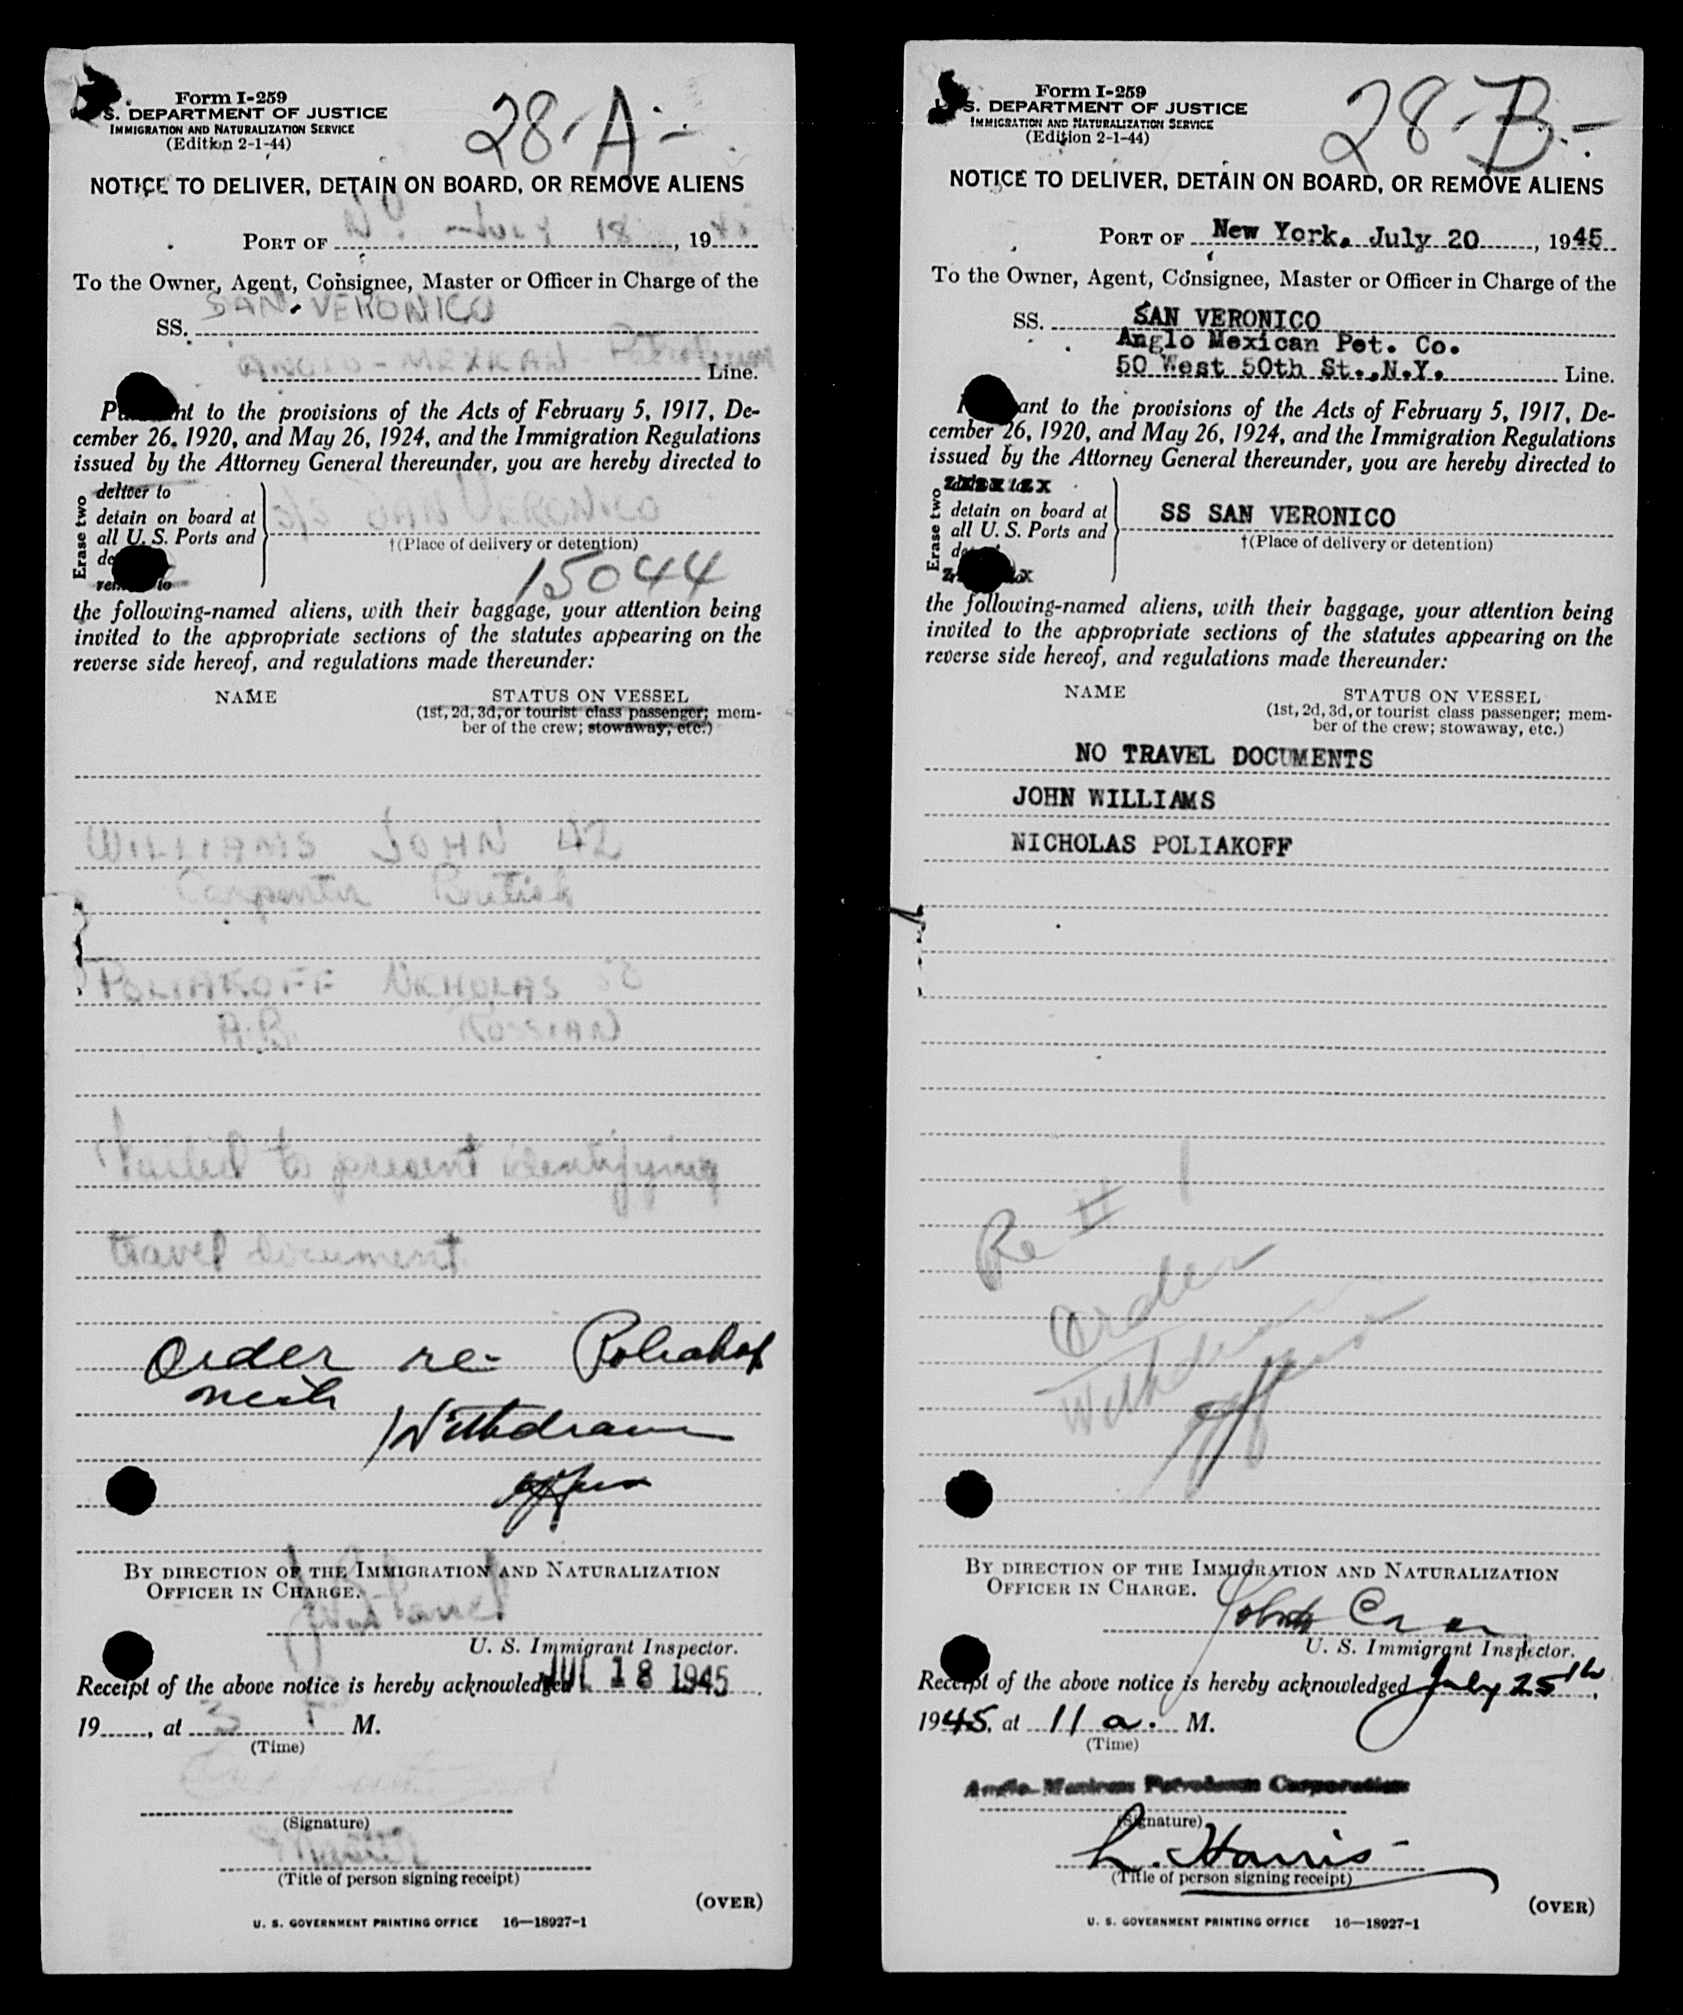 Form I-259
S. DEPARTMENT OF JUSTICE
IMMIGRATION AND NATURALIZATION SERVICE
(Edition 2-1-44)
28-A-
NOTICE TO DELIVER, DETAIN ON BOARD, OR REMOVE ALIENS
PORT OF N.Y. July 18, 1945
To the Owner, Agent, Consignee, Master or Officer in Charge of the
SS. SAN VERONICO
ANGLO-MEXICAN Petroleum Line.
to the provisions of the Acts of February 5, 1917, De-
cember 26, 1920, and May 26, 1924, and the Immigration Regulations
issued by the Attorney General thereunder, you are hereby directed to
Erase two
deliver to
detain on board at
all U. S. Ports and
S/S SAN VERONICO
†(Place of delivery or detention)
15044
the following-named aliens, with their baggage, your attention being
invited to the appropriate sections of the statutes appearing on the
reverse side hereof, and regulations made thereunder:
NAME STATUS ON VESSEL
(1st, 2d, 3d, or tourist class passenger; mem-
ber of the crew; stowaway, etc.)
WILLIAMS JOHN 42
Carpenter British
POLIAKOFF NICHOLAS
A.B. RUSSIAN
Failed to present identifying
travel document
Order re- Poliakoff
Withdrawn
BY DIRECTION OF THE IMMIGRATION AND NATURALIZATION
OFFICER IN CHARGE.
U. S. Immigrant Inspector.
Receipt of the above notice is hereby acknowledged JUL 18 1945
19......, at 3 P M.
(Time)
(Signature)
(Title of person signing receipt)
(OVER)
U. S. GOVERNMENT PRINTING OFFICE 16—18927-1
Form I-259
S. DEPARTMENT OF JUSTICE
IMMIGRATION AND NATURALIZATION SERVICE
(Edition 2-1-44)
28-B-
NOTICE TO DELIVER, DETAIN ON BOARD, OR REMOVE ALIENS
PORT OF New York, July 20, 1945
To the Owner, Agent, Consignee, Master or Officer in Charge of the
SS. SAN VERONICO
Anglo Mexican Pet. Co.
50 West 50th St., N.Y. Line.
to the provisions of the Acts of February 5, 1917, De-
cember 26, 1920, and May 26, 1924, and the Immigration Regulations
issued by the Attorney General thereunder, you are hereby directed to
Erase two
detain on board at
all U. S. Ports and
SS SAN VERONICO
†(Place of delivery or detention)
the following-named aliens, with their baggage, your attention being
invited to the appropriate sections of the statutes appearing on the
reverse side hereof, and regulations made thereunder:
NAME STATUS ON VESSEL
(1st, 2d, 3d, or tourist class passenger; mem-
ber of the crew; stowaway, etc.)
NO TRAVEL DOCUMENTS
JOHN WILLIAMS
NICHOLAS POLIAKOFF
Re # 1
Order
Withdrawn
BY DIRECTION OF THE IMMIGRATION AND NATURALIZATION
OFFICER IN CHARGE.
U. S. Immigrant Inspector.
Receipt of the above notice is hereby acknowledged July 25th,
1945, at 11 a. M.
(Time)
Anglo-Mexican Petroleum Corporation
(Signature)
L. Harris
(Title of person signing receipt)
(OVER)
U. S. GOVERNMENT PRINTING OFFICE 16—18927-1